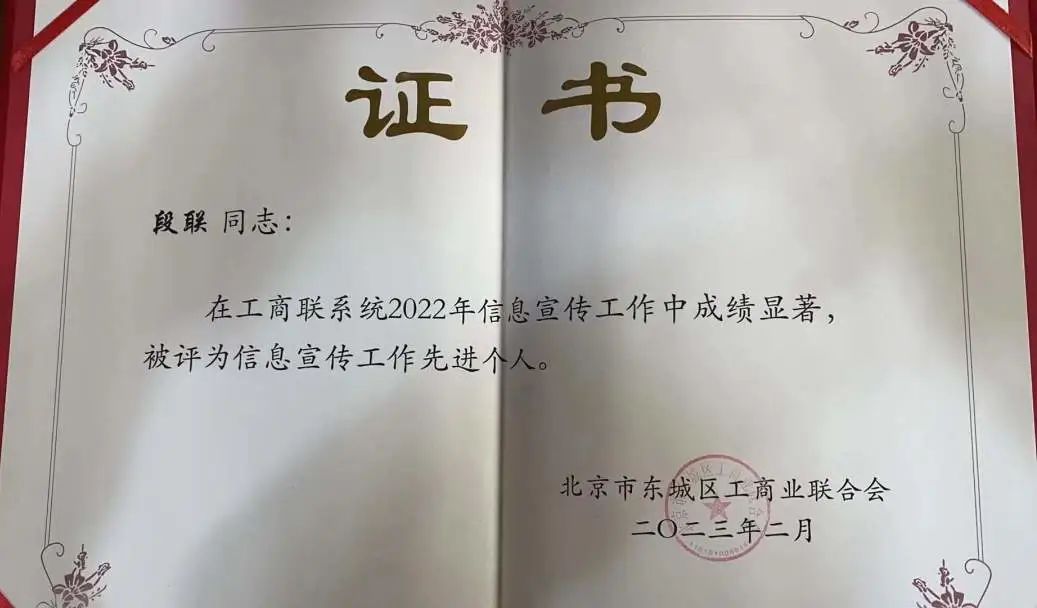 证书
段联 同志：
在工商联系统2022年信息宣传工作中成绩显著，
被评为信息宣传工作先进个人。
北京市东城区工商业联合会
二〇二三年二月